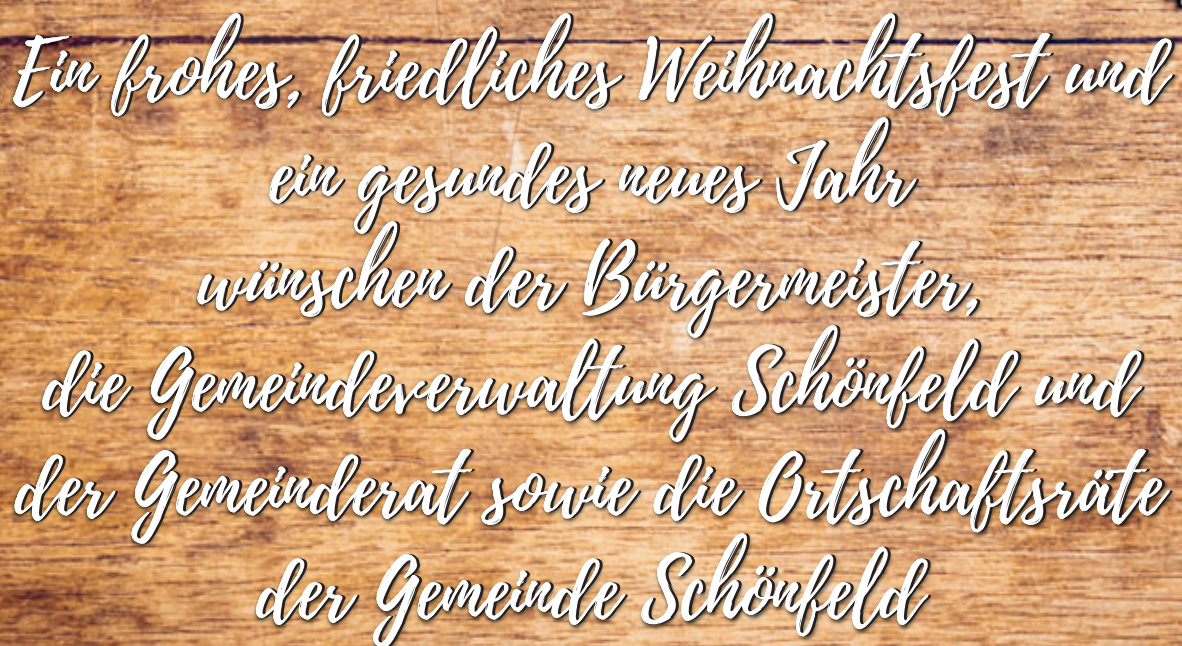 Ein frohes, friedliches Weihnachtsfest und
ein gesundes neues Jahr
wünschen der Bürgermeister,
die Gemeindeverwaltung Schönfeld und
der Gemeinderat sowie die Ortschaftsräte
der Gemeinde Schönfeld